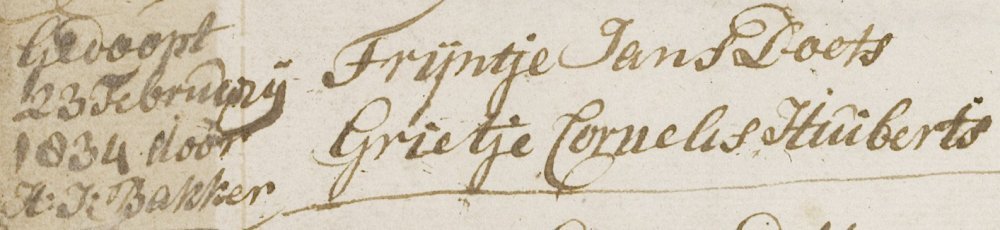 Gedoopt
23 Februarij
1834 door
H: J: Bakker
Trijntje Jans Doets
Grietje Cornelis Huiberts